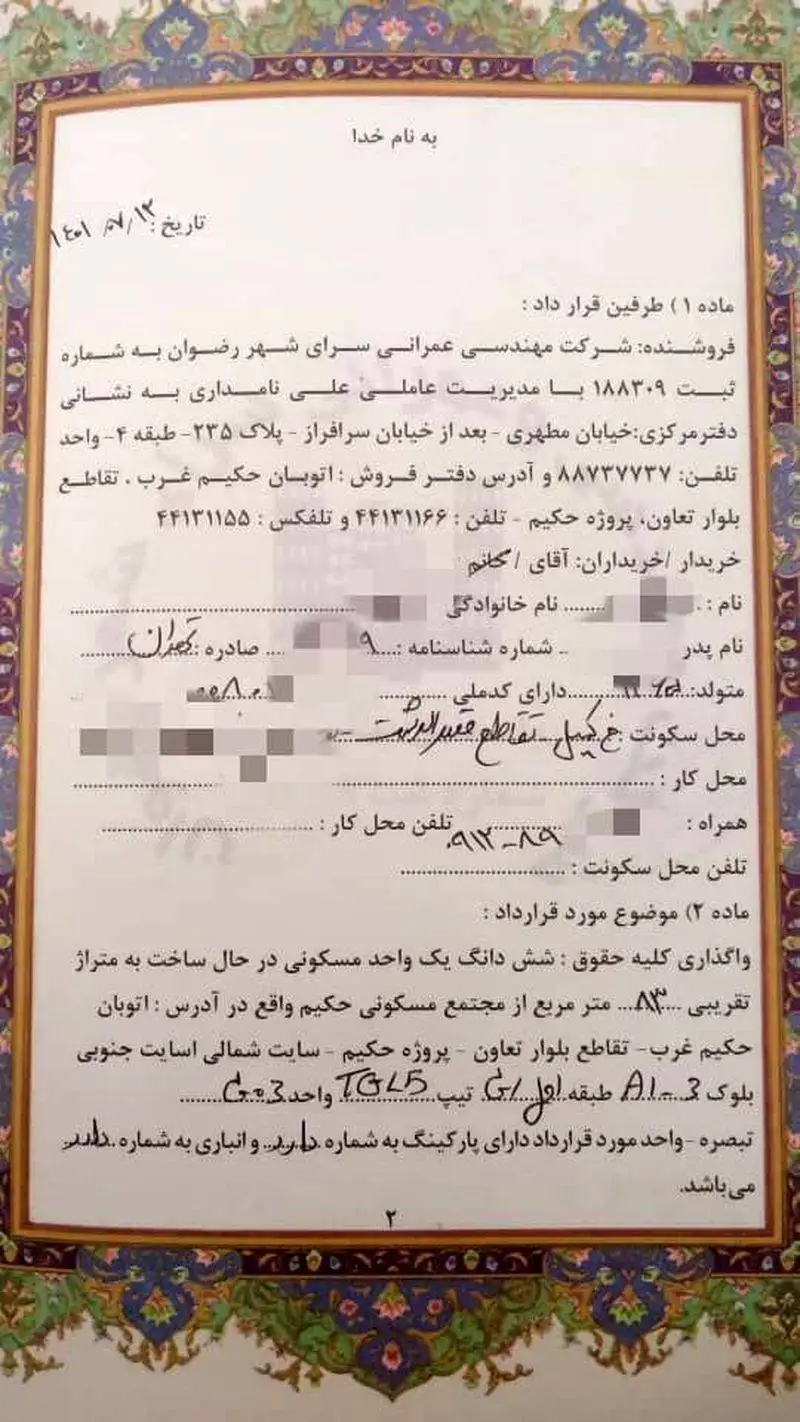 به نام خدا
تاریخ: ۱۴۰۱/۰۷/۱۳
ماده ۱) طرفین قرار داد :
فروشنده: شرکت مهندسی عمرانی سرای شهر رضوان به شماره
ثبت ۱۸۸۳۰۹ با مدیریت عاملی علی نامداری به نشانی
دفترمرکزی:خیابان مطهری - بعد از خیابان سرافراز - پلاک ۲۳۵- طبقه ۴- واحد
تلفن: ۸۸۷۳۷۷۳۷ و آدرس دفتر فروش : اتوبان حکیم غرب ، تقاطع
بلوار تعاون، پروژه حکیم - تلفن : ۴۴۱۳۱۱۶۶ و تلفکس : ۴۴۱۳۱۱۵۵
خریدار /خریداران: آقای / خانم
نام : نام خانوادگی
نام پدر شماره شناسنامه : ۹ صادره : تهران
متولد: دارای کدملی
محل سکونت : تقاطع
محل کار :
همراه : ۰۹۱۲-۸۹ تلفن محل کار :
تلفن محل سکونت :
ماده ۲) موضوع مورد قرارداد :
واگذاری کلیه حقوق : شش دانگ یک واحد مسکونی در حال ساخت به متراژ
تقریبی ۸۳ متر مربع از مجتمع مسکونی حکیم واقع در آدرس : اتوبان
حکیم غرب- تقاطع بلوار تعاون - پروژه حکیم - سایت شمالی اسایت جنوبی
بلوک A1-3 طبقه اول/G تیپ TGL5 واحد G03
تبصره -واحد مورد قرارداد دارای پارکینگ به شماره دارد و انباری به شماره دارد
می باشد.
۲